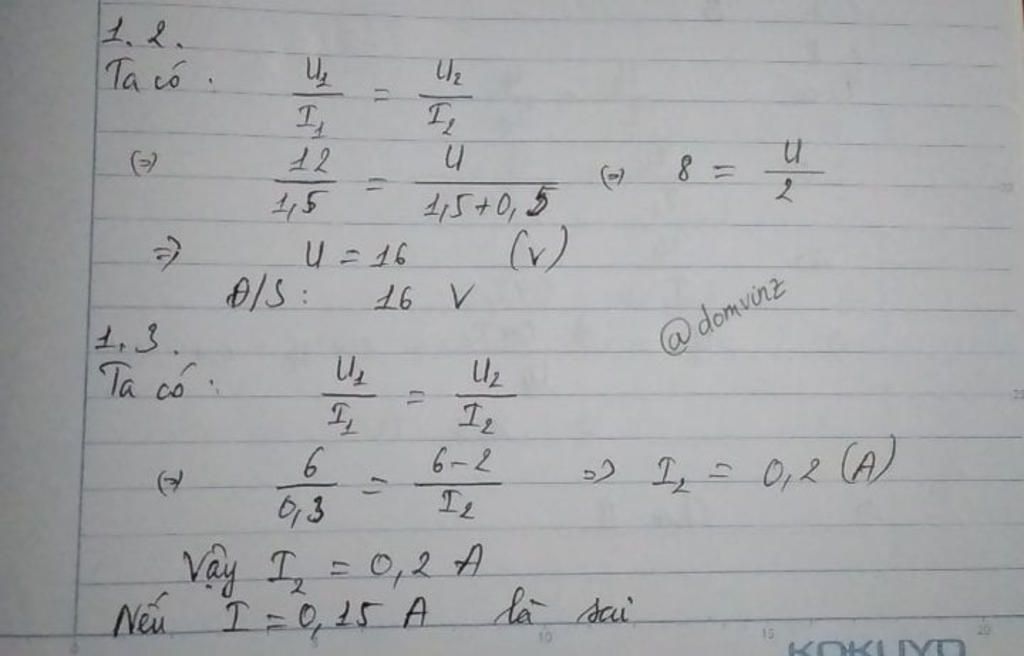 1.2.
Ta có: U₁/I₁ = U₂/I₂
(=) 12/1,5 = U/(1,5+0,5) (=) 8 = U/2
=) U = 16 (V)
Đ/S: 16 V
@domvinz
1,3.
Ta có: U₁/I₁ = U₂/I₂
(=) 6/0,3 = (6-2)/I₂ =) I₂ = 0,2 (A)
Vậy I₂ = 0,2 A
Nếu I = 0,15 A là sai
5 10 15 20
KOKUYO